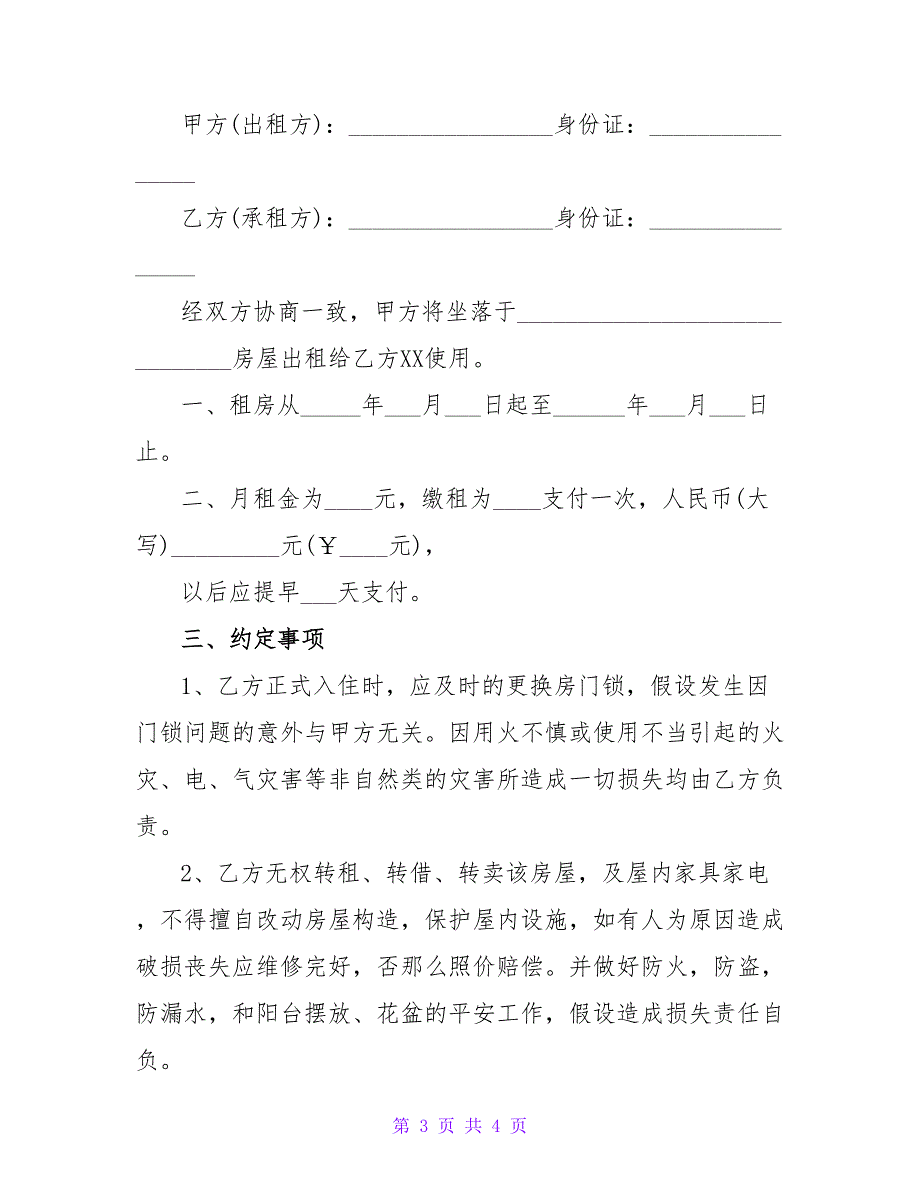 甲方(出租方)：_________________身份证：___________
_____
乙方(承租方)：_________________身份证：___________
_____
经双方协商一致，甲方将坐落于______________________
________房屋出租给乙方XX使用。
一、租房从_____年___月___日起至______年___月___日
止。
二、月租金为____元，缴租为____支付一次，人民币(大
写)_________元(￥____元)，
以后应提早___天支付。
三、约定事项
1、乙方正式入住时，应及时的更换房门锁，假设发生因
门锁问题的意外与甲方无关。因用火不慎或使用不当引起的火
灾、电、气灾害等非自然类的灾害所造成一切损失均由乙方负
责。
2、乙方无权转租、转借、转卖该房屋，及屋内家具家电
，不得擅自改动房屋构造，保护屋内设施，如有人为原因造成
破损丧失应维修完好，否那么照价赔偿。并做好防火，防盗，
防漏水，和阳台摆放、花盆的平安工作，假设造成损失责任自
负。
第 3 页 共 4 页